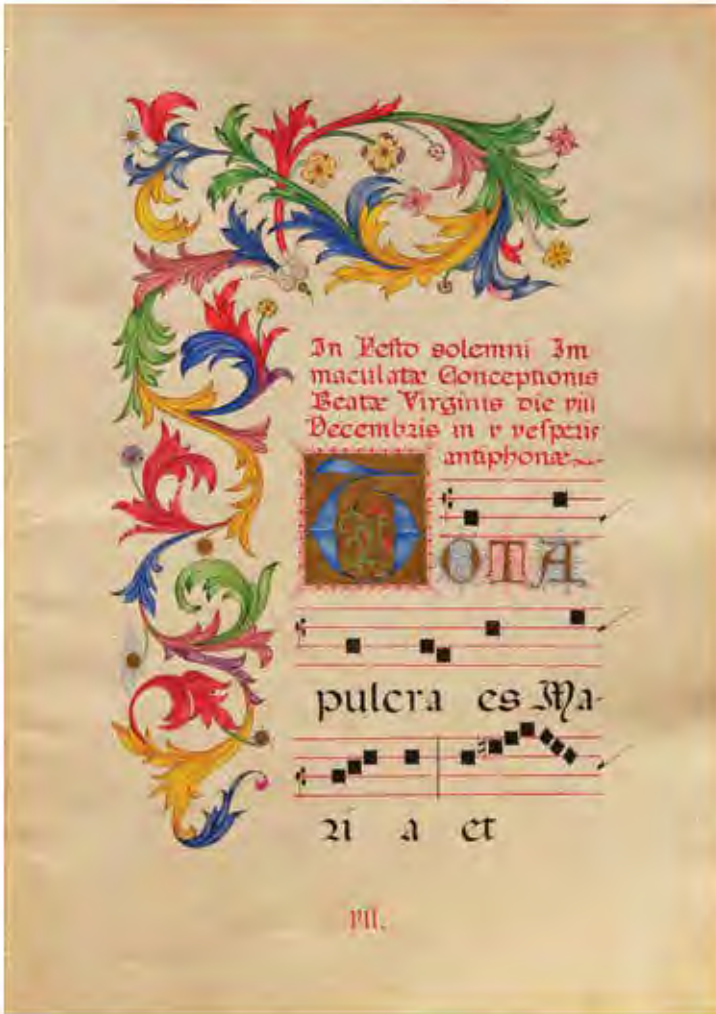 In Festo solemni Im
maculatæ Conceptionis
Beatæ Virginis die viii
Decembris in v vesperis
antiphonæ
TOTA
pulcra es Ma-
ri a et
VII.